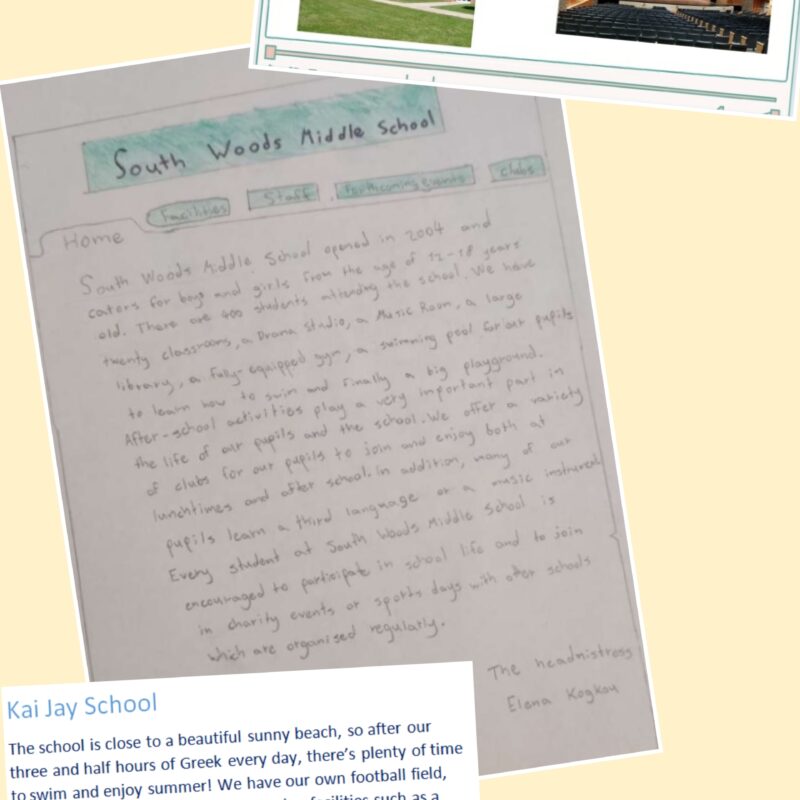 South Woods Middle School
Facilities
Staff
forthcoming events
clubs
Home
South Woods Middle School opened in 2004 and
caters for boys and girls from the age of 12-18 years
old. There are 400 students attending the school. We have
twenty classrooms, a Drama studio, a Music Room, a large
library, a fully-equipped gym, a swimming pool for our pupils
to learn how to swim and finally a big playground.
After-school activities play a very important part in
the life of our pupils and the school. We offer a variety
of clubs for our pupils to join and enjoy both at
lunchtimes and after school. In addition, many of our
pupils learn a third language or a music instrument
Every student at South Woods Middle School is
encouraged to participate in school life and to join
in charity events or sports days with other schools
which are organised regularly.
The headmistress
Elena Kogkou
Kai Jay School
The school is close to a beautiful sunny beach, so after our
three and half hours of Greek every day, there's plenty of time
to swim and enjoy summer! We have our own football field,
facilities such as a